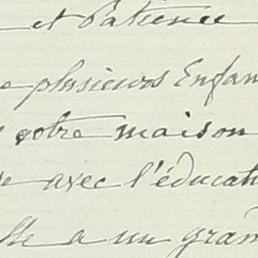 et Patience
plusieurs Enfan
votre maison
avec l'éducat
a un gran